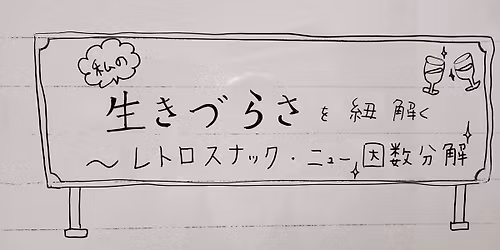 私の
生きづらさを紐解く
〜レトロスナック・ニュー因数分解